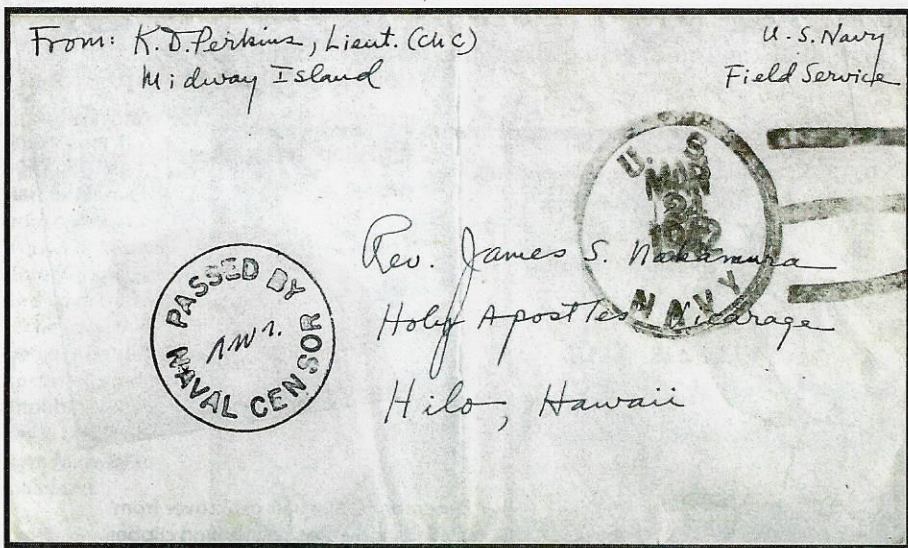 From: K.D. Perkins, Lieut. (ChC)
Midway Island
U.S. Navy
Field Service
U. S.
MAR
1942
NAVY
PASSED BY
NAVAL CENSOR
Rev. James S. Nakamura
Holy Apostles Vicarage
Hilo, Hawaii